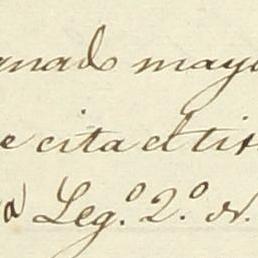 anado mayo
e cita el tit
a Leg.º 2.º N.